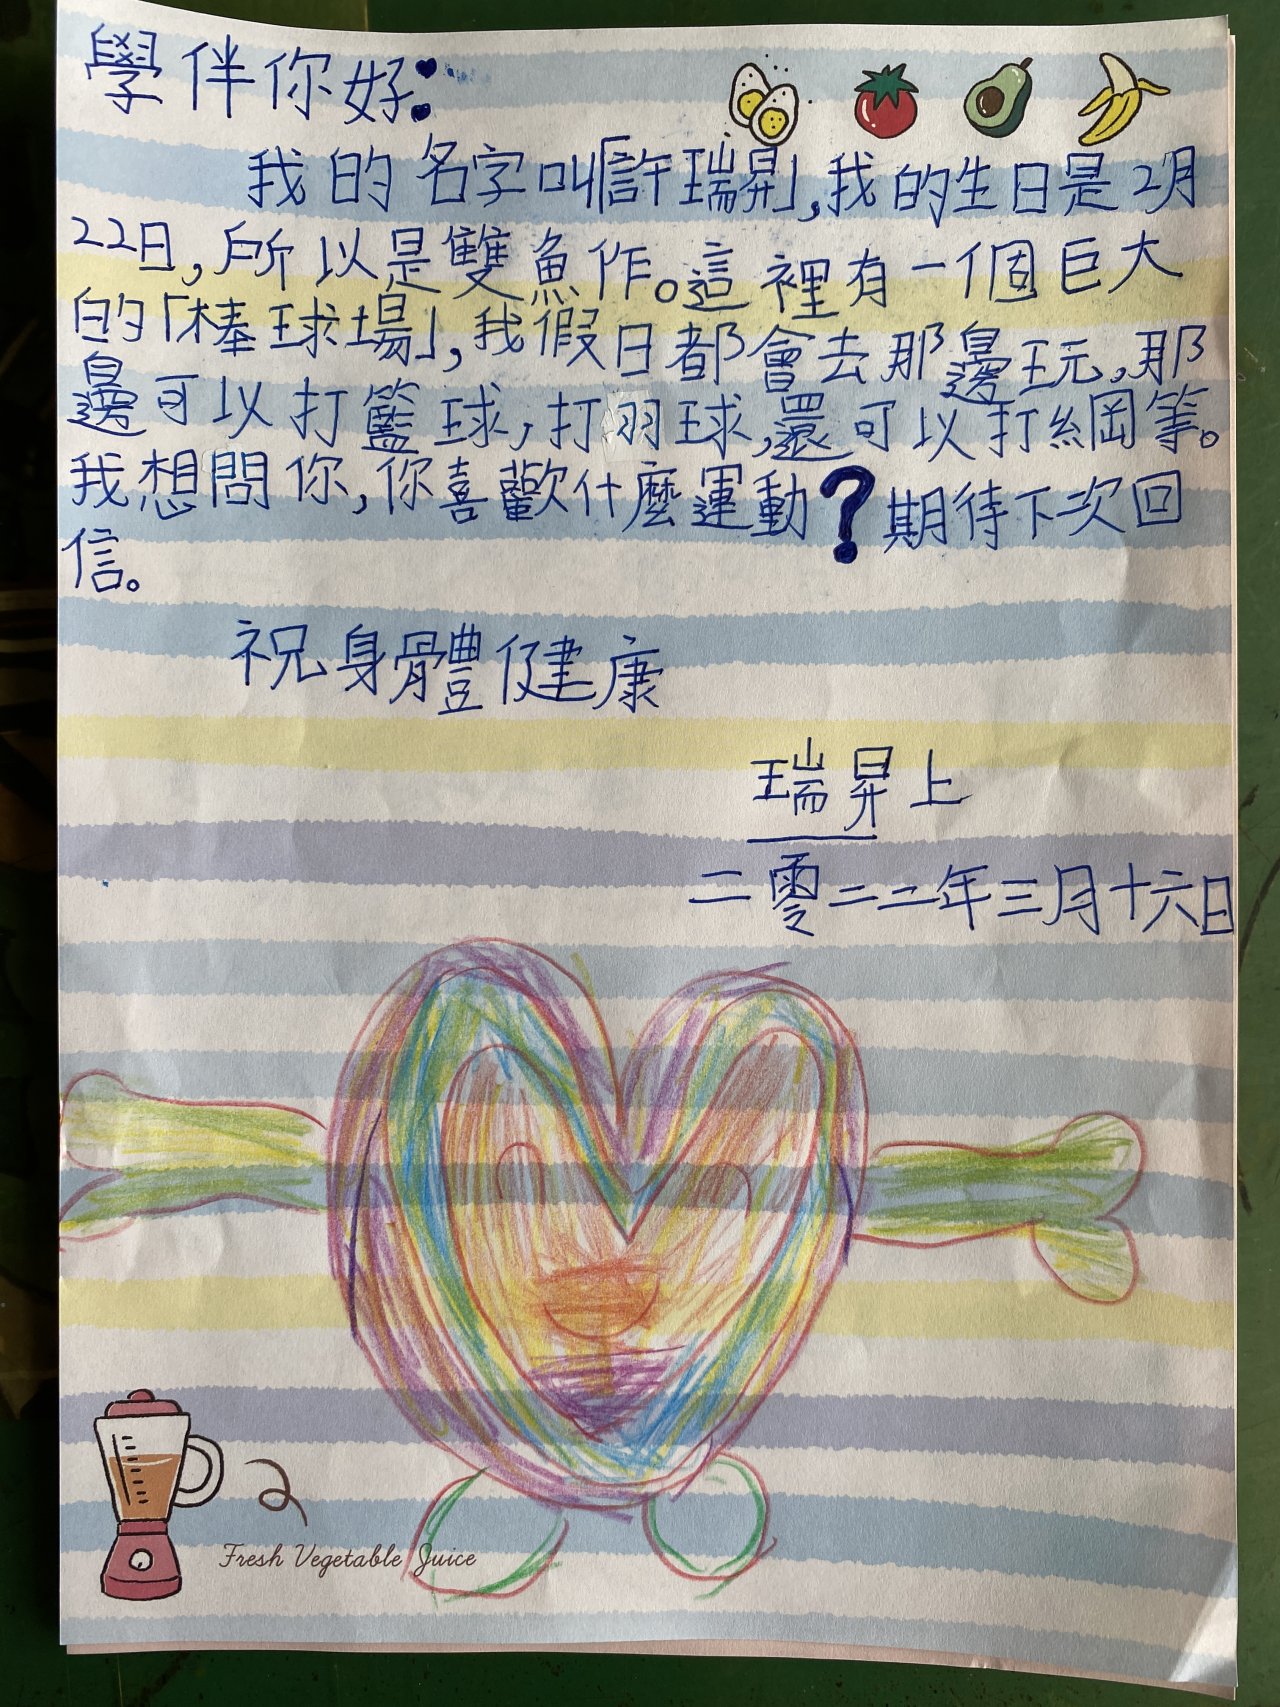 學伴你好：
我的名字叫「許瑞昇」,我的生日是2月
22日,所以是雙魚作。這裡有一個巨大
的「棒球場」,我假日都會去那邊玩,那
邊可以打籃球,打羽球,還可以打綱等。
我想問你,你喜歡什麼運動?期待下次回
信。
祝身體健康
瑞昇上
二零二二年三月十六日
Fresh Vegetable Juice